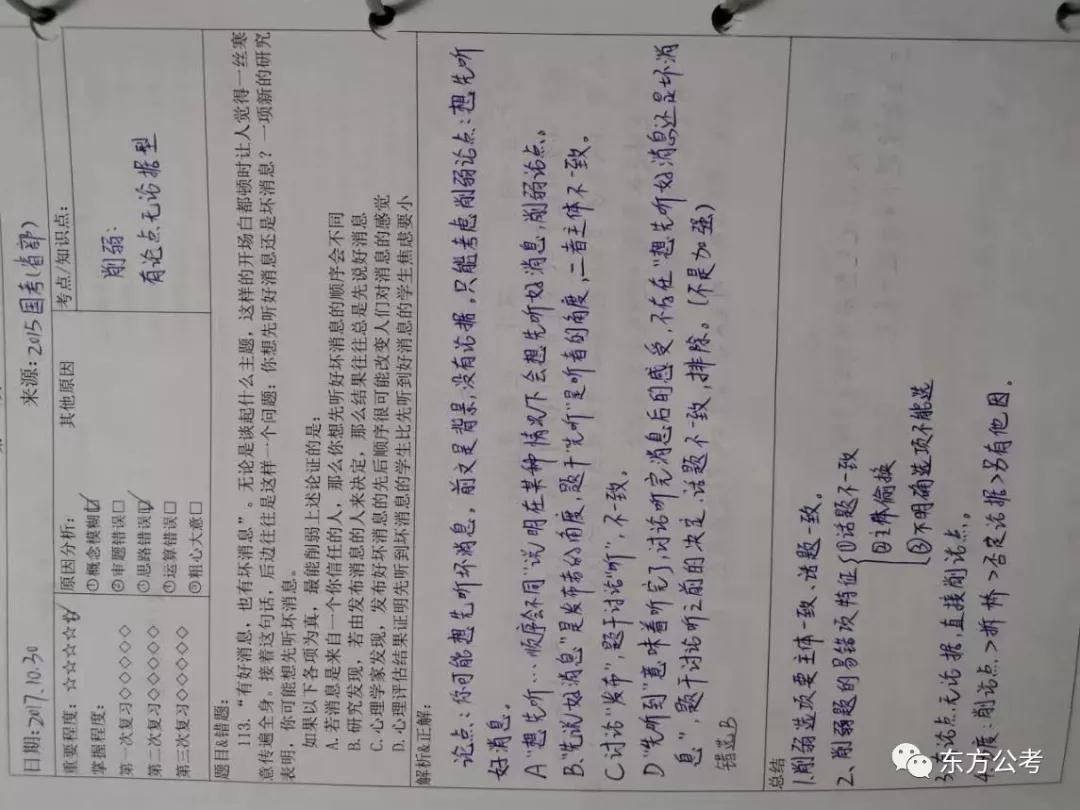 日期:2017.10.30
来源:2015国考(省部)
重要程度:☆☆☆☆☆
掌握程度:
第一次复习◇◇◇◇◇
第二次复习◇◇◇◇◇
第三次复习◇◇◇◇◇
原因分析:
①概念模糊☑
②审题错误□
③思路错误☑
①运算错误□
③粗心大意□
其他原因
考点/知识点:
削弱:
有论点无论据型
题目&错题:
113. “有好消息，也有坏消息”。无论是谈起什么主题，这样的开场白都顿时让人觉得一丝寒
意传遍全身。接着这句话，后边往往是这样一个问题：你想先听好消息还是坏消息？一项新的研究
表明，你可能想先听坏消息。
如果以下各项为真，最能削弱上述论证的是:
A. 若消息是来自一个你信任的人，那么你想先听好坏消息的顺序会不同
B. 研究发现，若由发布消息的人来决定，那么结果往往总是先说好消息
C. 心理学家发现，发布好坏消息的先后顺序很可能改变人们对消息的感觉
D. 心理评估结果证明先听到坏消息的学生比先听到好消息的学生焦虑要小
解析&正解:
论点:你可能想先听坏消息。前文是背景,没有论据,只能考虑削弱论点:想先听
好消息。
A“想先听…顺序会不同”说明在某种情况下会想先听好消息,削弱论点。
B.“先说好消息”是发布者的角度,题干“先听”是听者的角度,二者主体不一致。
C讨论“发布”,题干讨论“听”,不一致。
D“先听到”意味着听完了,讨论听完消息后的感受,不存在“想先听好消息还是坏消
息”,题干讨论听之前的决定,话题不一致,排除。(不是加强)
错选B
总结
1.削弱选项要主体一致、话题一致。
2、削弱题的易错项特征
①话题不一致
②主体偷换
③不明确选项不能选
论点无论据,直接削论点。
度:削论点>拆桥>否定论据>另有他因。
东方公考